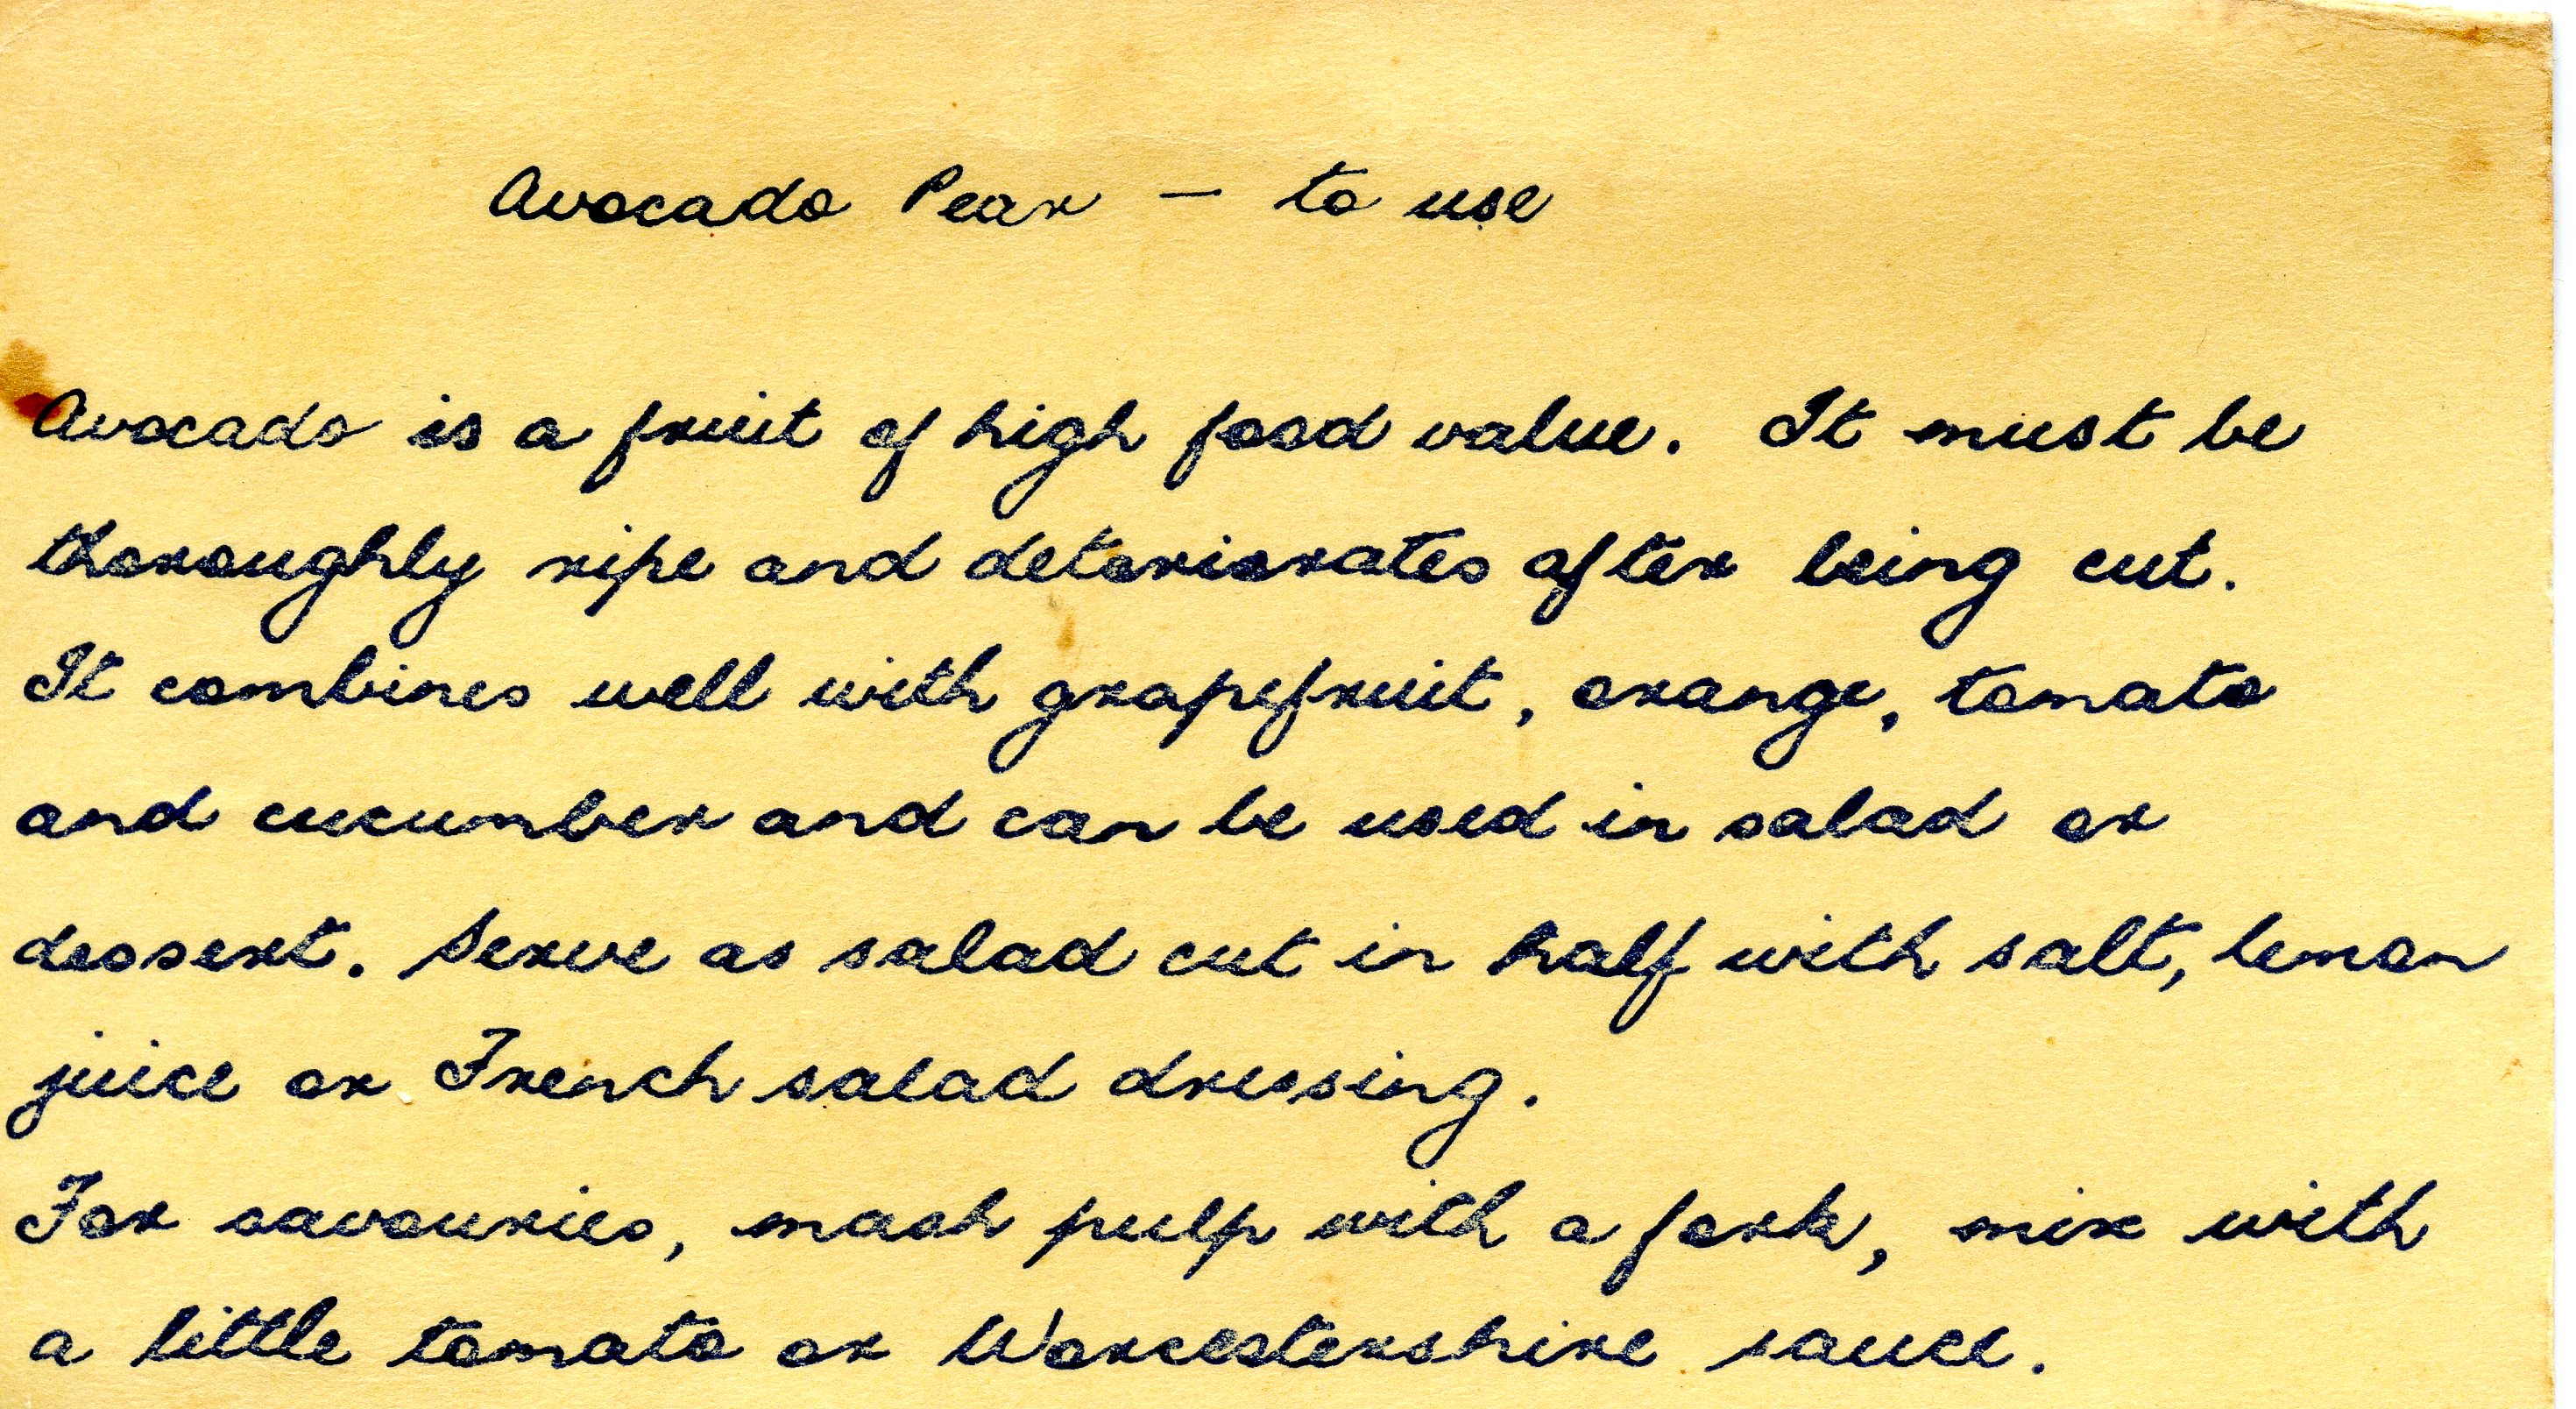 Avocado Pear - to use
Avocado is a fruit of high food value. It must be
thoroughly ripe and deteriorates after being cut.
It combines well with grapefruit, orange, tomato
and cucumber and can be used in salad or
dessert. Serve as salad cut in half with salt, lemon
juice or French salad dressing.
For savouries, mash pulp with a fork, mix with
a little tomato or Worcestershire sauce.